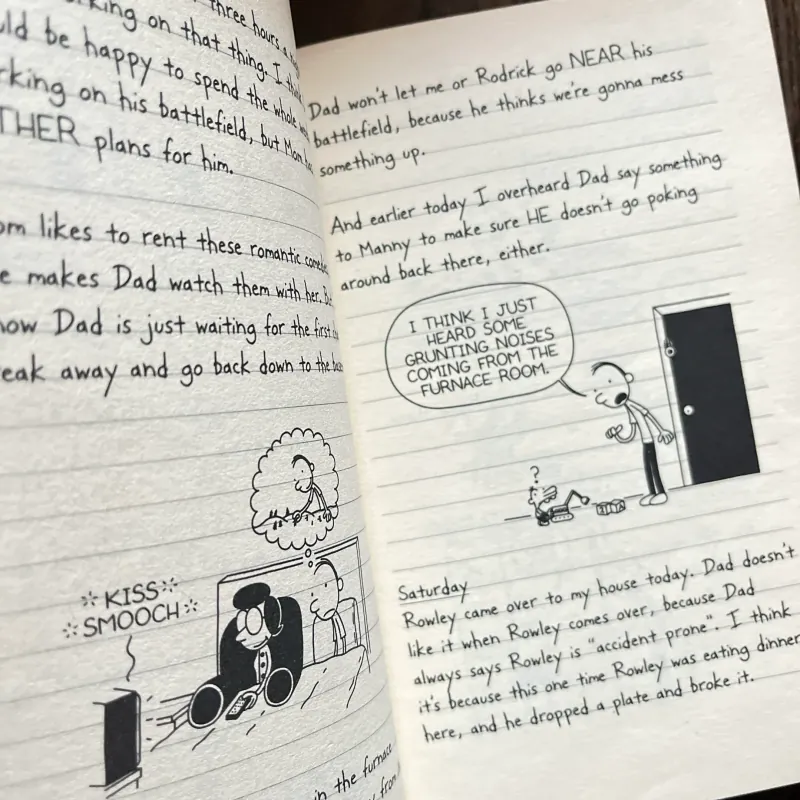 three hours a
king on that thing. I
ld be happy to spend the whole
rking on his battlefield, but Mom
THER plans for him.
om likes to rent these romantic
e makes Dad watch them with her.
now Dad is just waiting for the first
eak away and go back down to the
*KISS*
*SMOOCH*
in the furnace
Dad won't let me or Rodrick go NEAR his
battlefield, because he thinks we're gonna mess
something up.
And earlier today I overheard Dad say something
to Manny to make sure HE doesn't go poking
around back there, either.
I THINK I JUST
HEARD SOME
GRUNTING NOISES
COMING FROM THE
FURNACE ROOM.
?
Saturday
Rowley came over to my house today. Dad doesn't
like it when Rowley comes over, because Dad
always says Rowley is "accident prone". I think
it's because this one time Rowley was eating dinner
here, and he dropped a plate and broke it.